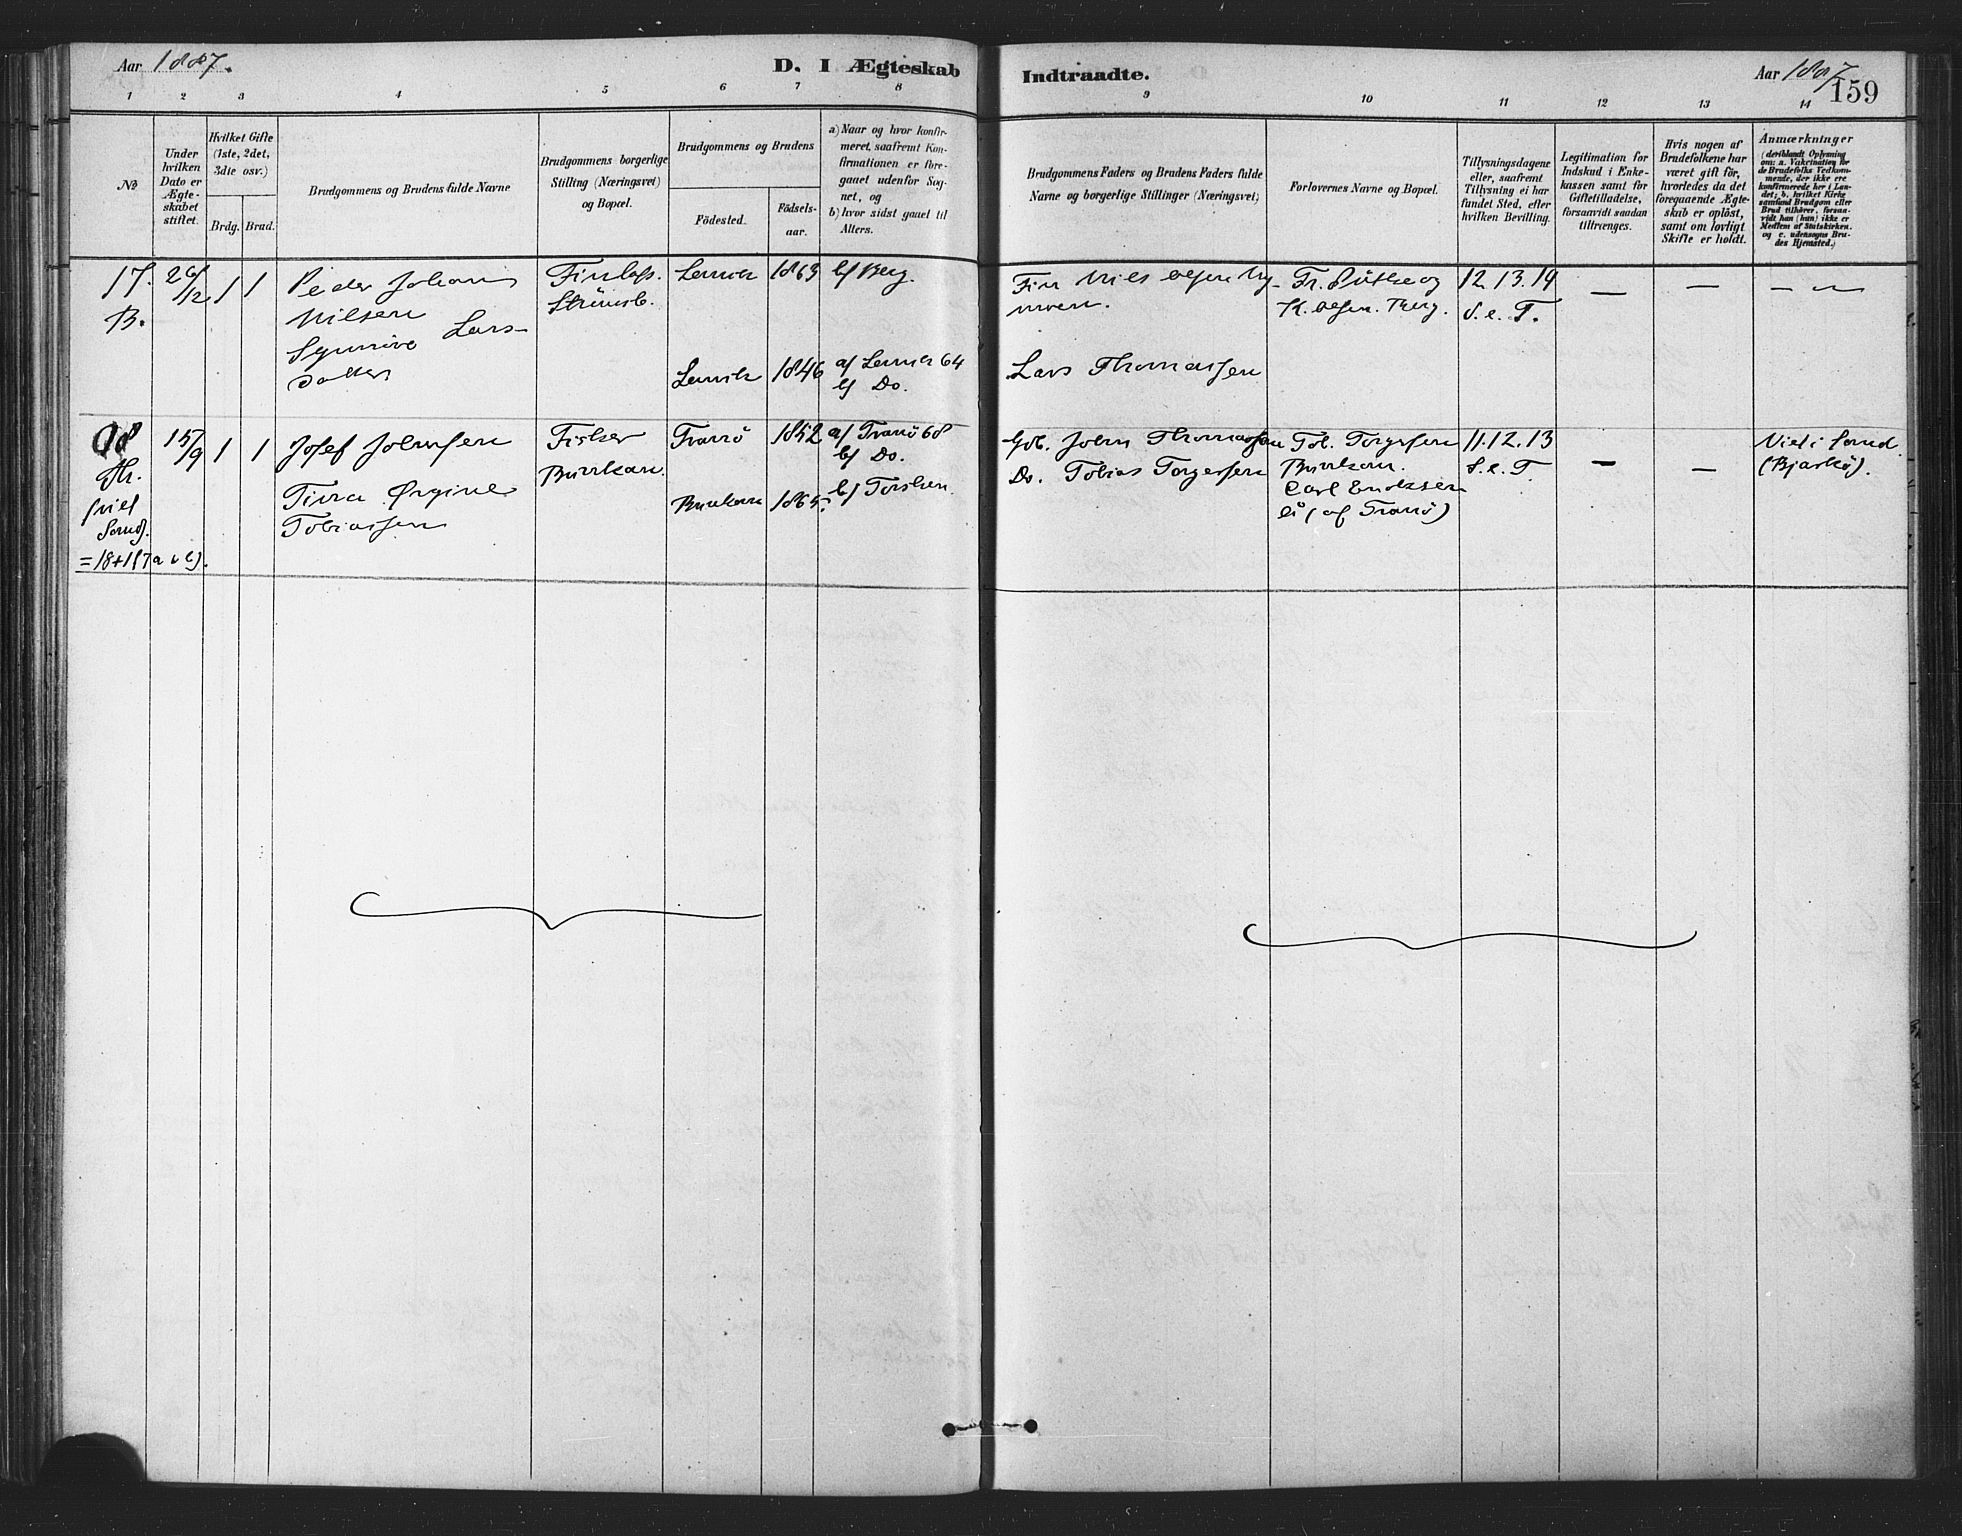 Aar 1887.
D. I Ægteskab
Indtraadte.
Aar 1887
159
1 2 3 4 5 6 7 8 9 10 11 12 13 14
No
Under hvilken Dato er Ægteskabet stiftet.
Hvilket Gifte (1ste, 2det, 3dte osv.)
Brdg. Brud.
Brudgommens og Brudens fulde Navne
Brudgommens borgerlige Stilling (Næringsvei) og Bopæl.
Brudgommens og Brudens
Födested.
Födsels-aar.
a) Naar og hvor konfirmeret, saafremt Konfirmationen er foregaaet udenfor Sognet, og
b) hvor sidst gaaet til Alters.
Brudgommens Faders og Brudens Faders fulde Navne og borgerlige Stillinger (Næringsvei)
Forlovernes Navne og Bopæl.
Tillysningsdagene eller, saafremt Tillysning ei har fundet Sted, efter hvilken Bevilling.
Legitimation for Indskud i Enkekassen samt for Giftetilladelse, forsaavidt saadan tiltrænges.
Hvis nogen af Brudefolkene har været gift för, hvorledes da det foregaaende Ægteskab er oplöst, samt om lovligt Skifte er holdt.
Anmærkninger
(deriblandt Oplysning om: a. Vakcination for de Brudefolks Vedkommende, der ikke ere konfirmerede her i Landet; b. hvilket Kirkesamfund Brudgom eller Brud tilhörer, forsaavidt han (hun) ikke er Medlem af Statskirken, og c. udensogns Brudes Hjemsted.)
17. B.
26/12
1 1
Peder Johan
Nilsen
Lars-
datter
Lenvik 1863 b) Berg.
Lenvik 1846 a) Lenvik 64
b) Do.
Fin Nils Olsen
Lars Thomassen
K. Olsen. Berg.
12. 13. 14
S. e. T.
— — — —
18
15/9
1 1
Josef Johnsen
Tobiassen
Fisker
Tranö 1852 a) Tranö 68
b) Do.
1865. b) Torsken.
Gdb. John Thomassen
Do. Tobias Torgersen
Tob. Torgersen
Carl
(af Tranö)
11. 12. 13
S. e. T
— —
Viet i Sand
(Bjarkö).
(viet
Sand).
=18+117 a & b).